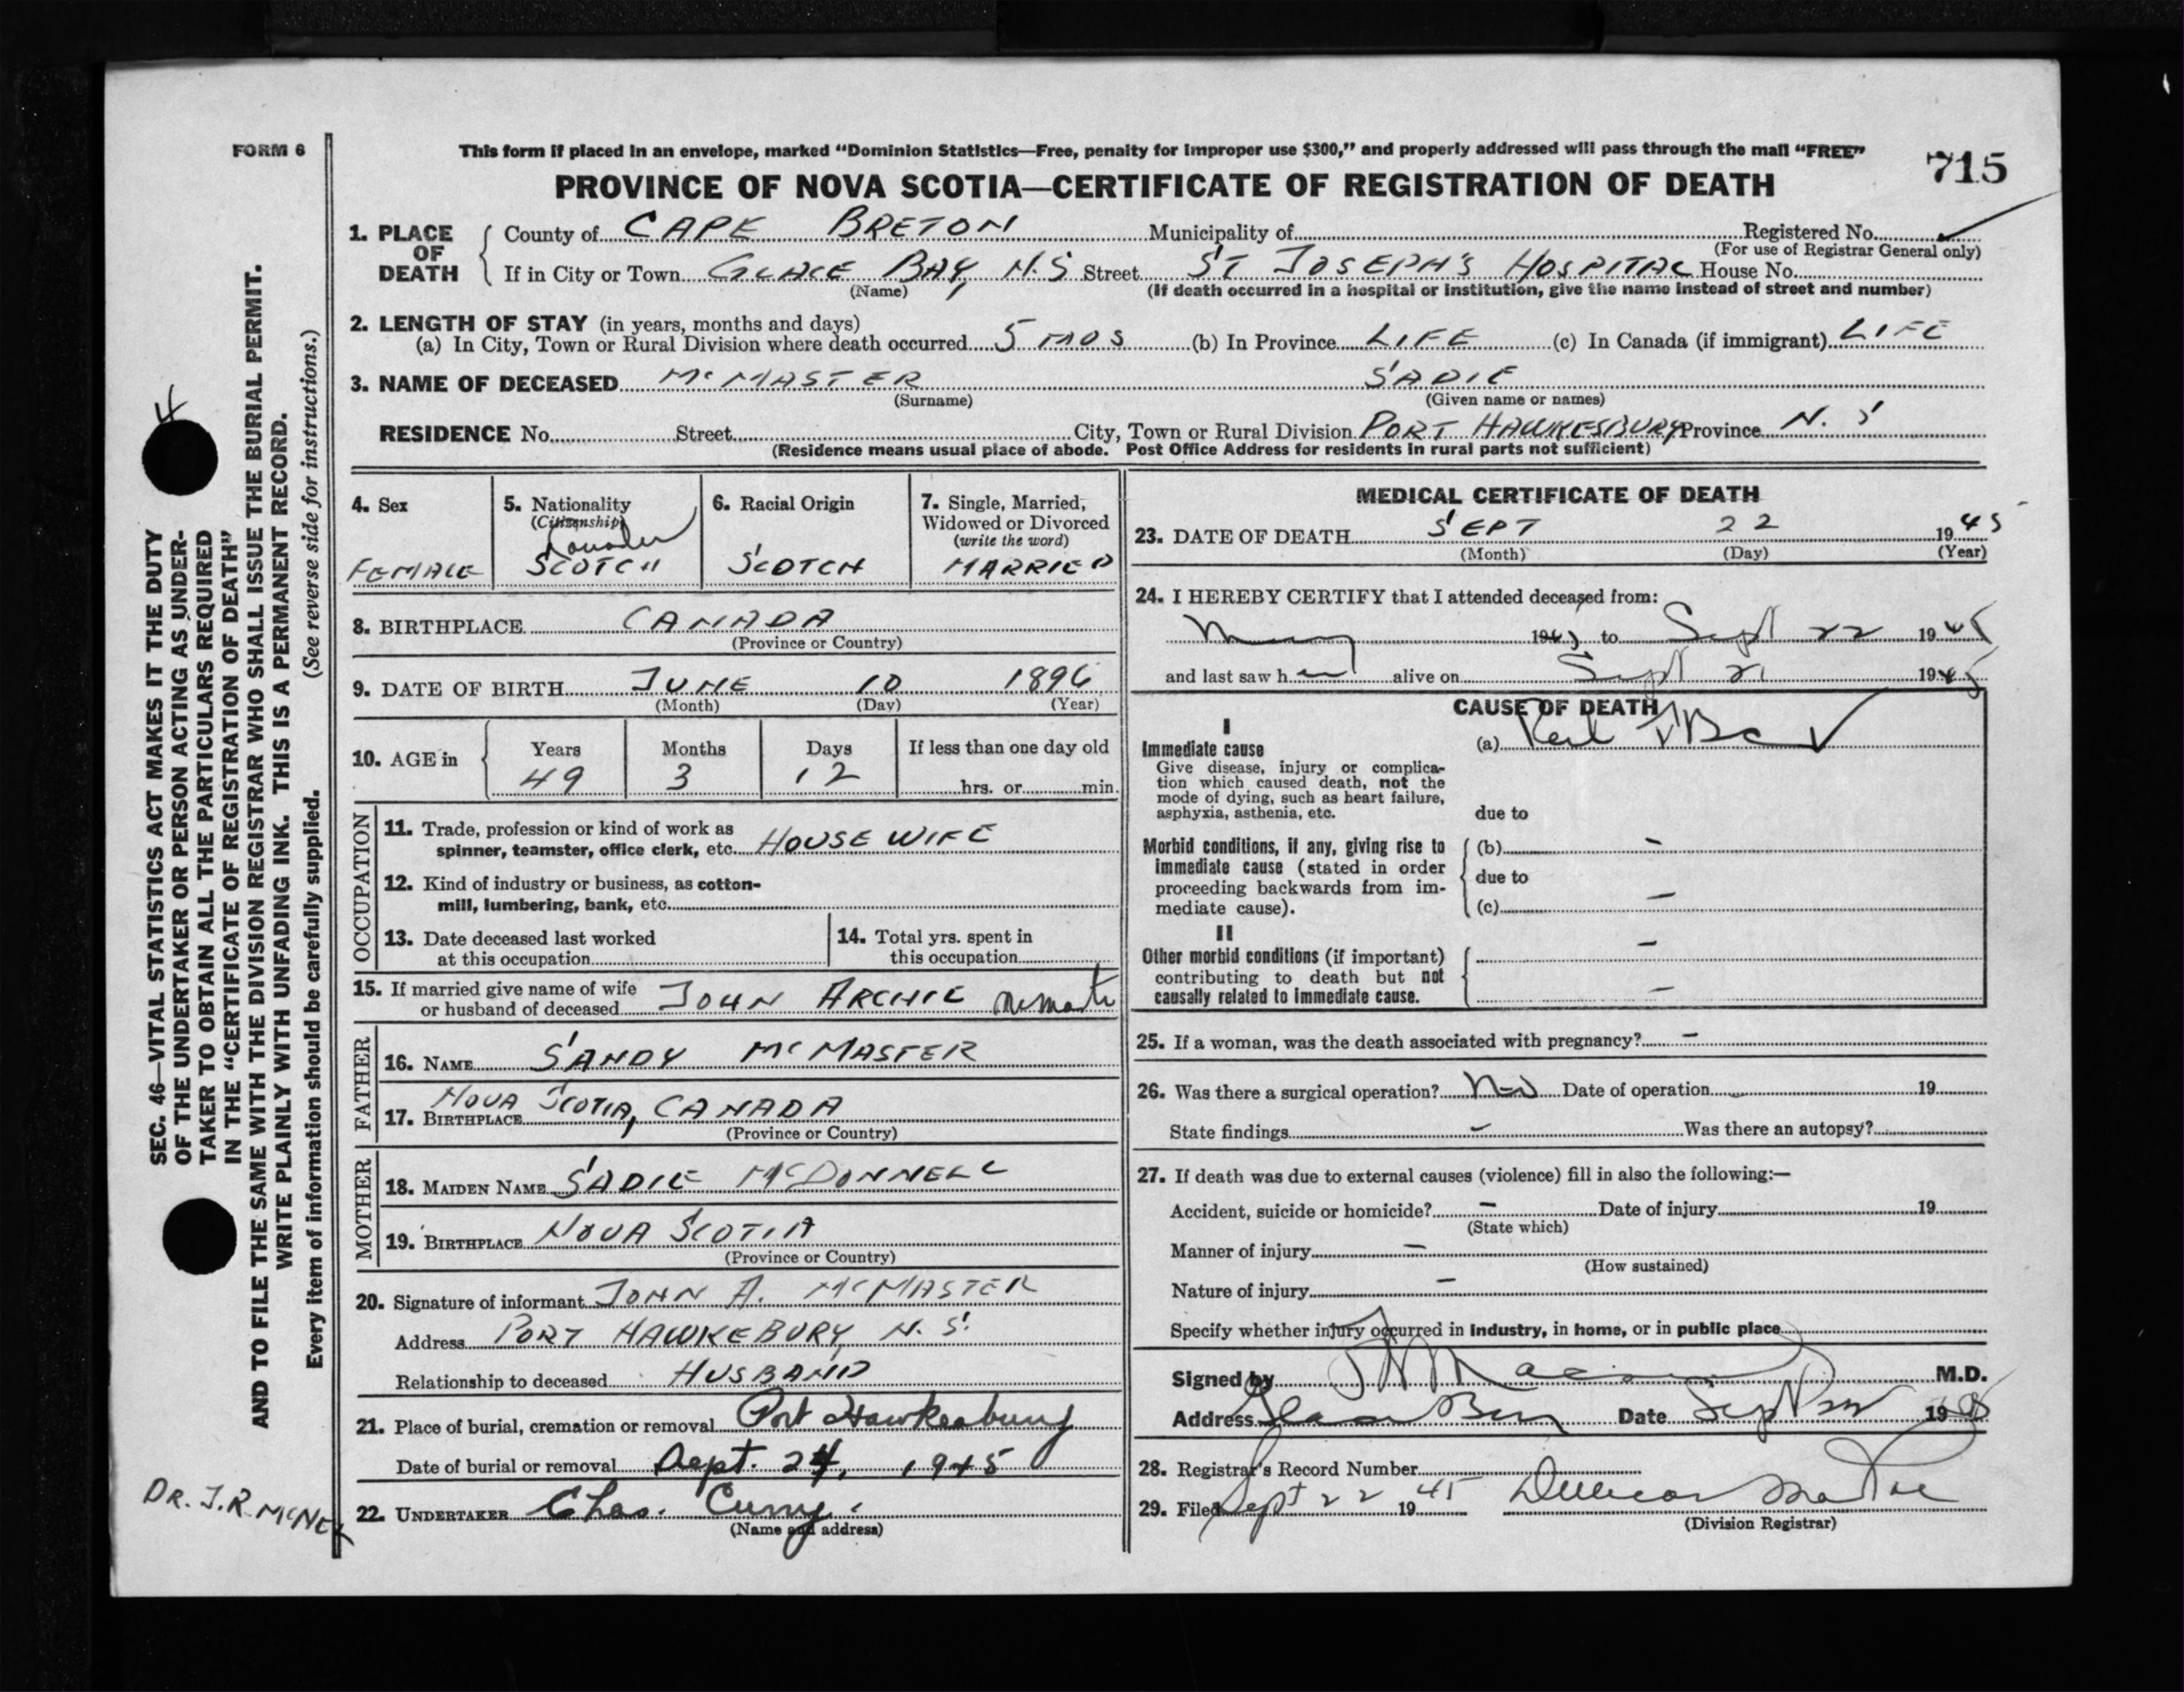 FORM 6
This form if placed in an envelope, marked “Dominion Statistics—Free, penalty for improper use $300,” and properly addressed will pass through the mail “FREE”
715
PROVINCE OF NOVA SCOTIA—CERTIFICATE OF REGISTRATION OF DEATH
1. PLACE OF DEATH
County of CAPE BRETON Municipality of Registered No.
(For use of Registrar General only)
If in City or Town GLACE BAY, N.S Street ST JOSEPH'S HOSPITAL House No.
(Name) (If death occurred in a hospital or institution, give the name instead of street and number)
2. LENGTH OF STAY (in years, months and days)
(a) In City, Town or Rural Division where death occurred 5 MOS (b) In Province LIFE (c) In Canada (if immigrant) LIFE
3. NAME OF DECEASED McMASTER SADIE
(Surname) (Given name or names)
RESIDENCE No. Street City, Town or Rural Division PORT HAWKESBURY Province N. S
(Residence means usual place of abode. Post Office Address for residents in rural parts not sufficient)
4. Sex
FEMALE
5. Nationality
(Citizenship)
SCOTCH
6. Racial Origin
SCOTCH
7. Single, Married,
Widowed or Divorced
(write the word)
MARRIED
8. BIRTHPLACE CANADA
(Province or Country)
9. DATE OF BIRTH JUNE 10 1896
(Month) (Day) (Year)
10. AGE in
Years Months Days If less than one day old
49 3 12 hrs. or min.
OCCUPATION
11. Trade, profession or kind of work as
spinner, teamster, office clerk, etc. HOUSE WIFE
12. Kind of industry or business, as cotton-
mill, lumbering, bank, etc.
13. Date deceased last worked
at this occupation
14. Total yrs. spent in
this occupation
15. If married give name of wife
or husband of deceased JOHN ARCHIE
FATHER
16. NAME SANDY McMASTER
17. BIRTHPLACE NOVA SCOTIA, CANADA
(Province or Country)
MOTHER
18. MAIDEN NAME SADIE McDONNELL
19. BIRTHPLACE NOVA SCOTIA
(Province or Country)
20. Signature of informant JOHN A. McMASTER
Address PORT HAWKEBURY, N. S.
Relationship to deceased HUSBAND
21. Place of burial, cremation or removal Port Hawkesbury
Date of burial or removal Sept. 24, 1945
22. UNDERTAKER Chas. Curry
(Name and address)
MEDICAL CERTIFICATE OF DEATH
23. DATE OF DEATH SEPT 22 1945
(Month) (Day) (Year)
24. I HEREBY CERTIFY that I attended deceased from:
to Sept 22 1945
and last saw her alive on Sept 21 1945
CAUSE OF DEATH
I
Immediate cause
Give disease, injury or complica-
tion which caused death, not the
mode of dying, such as heart failure,
asphyxia, asthenia, etc.
(a)
due to
Morbid conditions, if any, giving rise to
immediate cause (stated in order
proceeding backwards from im-
mediate cause).
(b) –
due to
(c) –
II
Other morbid conditions (if important)
contributing to death but not
causally related to immediate cause.
–
–
25. If a woman, was the death associated with pregnancy? –
26. Was there a surgical operation? No Date of operation 19
State findings – Was there an autopsy?
27. If death was due to external causes (violence) fill in also the following:—
Accident, suicide or homicide? – Date of injury 19
(State which)
Manner of injury –
(How sustained)
Nature of injury –
Specify whether injury occurred in industry, in home, or in public place
Signed by M.D.
Address Glace Bay Date Sept 22 19
28. Registrar's Record Number
29. Filed Sept 22 1945
(Division Registrar)
4
SEC. 46—VITAL STATISTICS ACT MAKES IT THE DUTY
OF THE UNDERTAKER OR PERSON ACTING AS UNDER-
TAKER TO OBTAIN ALL THE PARTICULARS REQUIRED
IN THE “CERTIFICATE OF REGISTRATION OF DEATH”
AND TO FILE THE SAME WITH THE DIVISION REGISTRAR WHO SHALL ISSUE THE BURIAL PERMIT.
WRITE PLAINLY WITH UNFADING INK. THIS IS A PERMANENT RECORD.
Every item of information should be carefully supplied. (See reverse side for instructions.)
DR. J.R. McNEIL